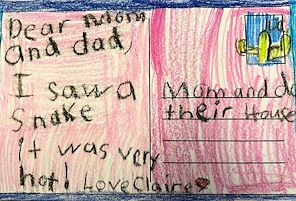 Dear Mom
and dad,
I saw a
Snake
it was very
hot! Love Claire
Mom and d
their House